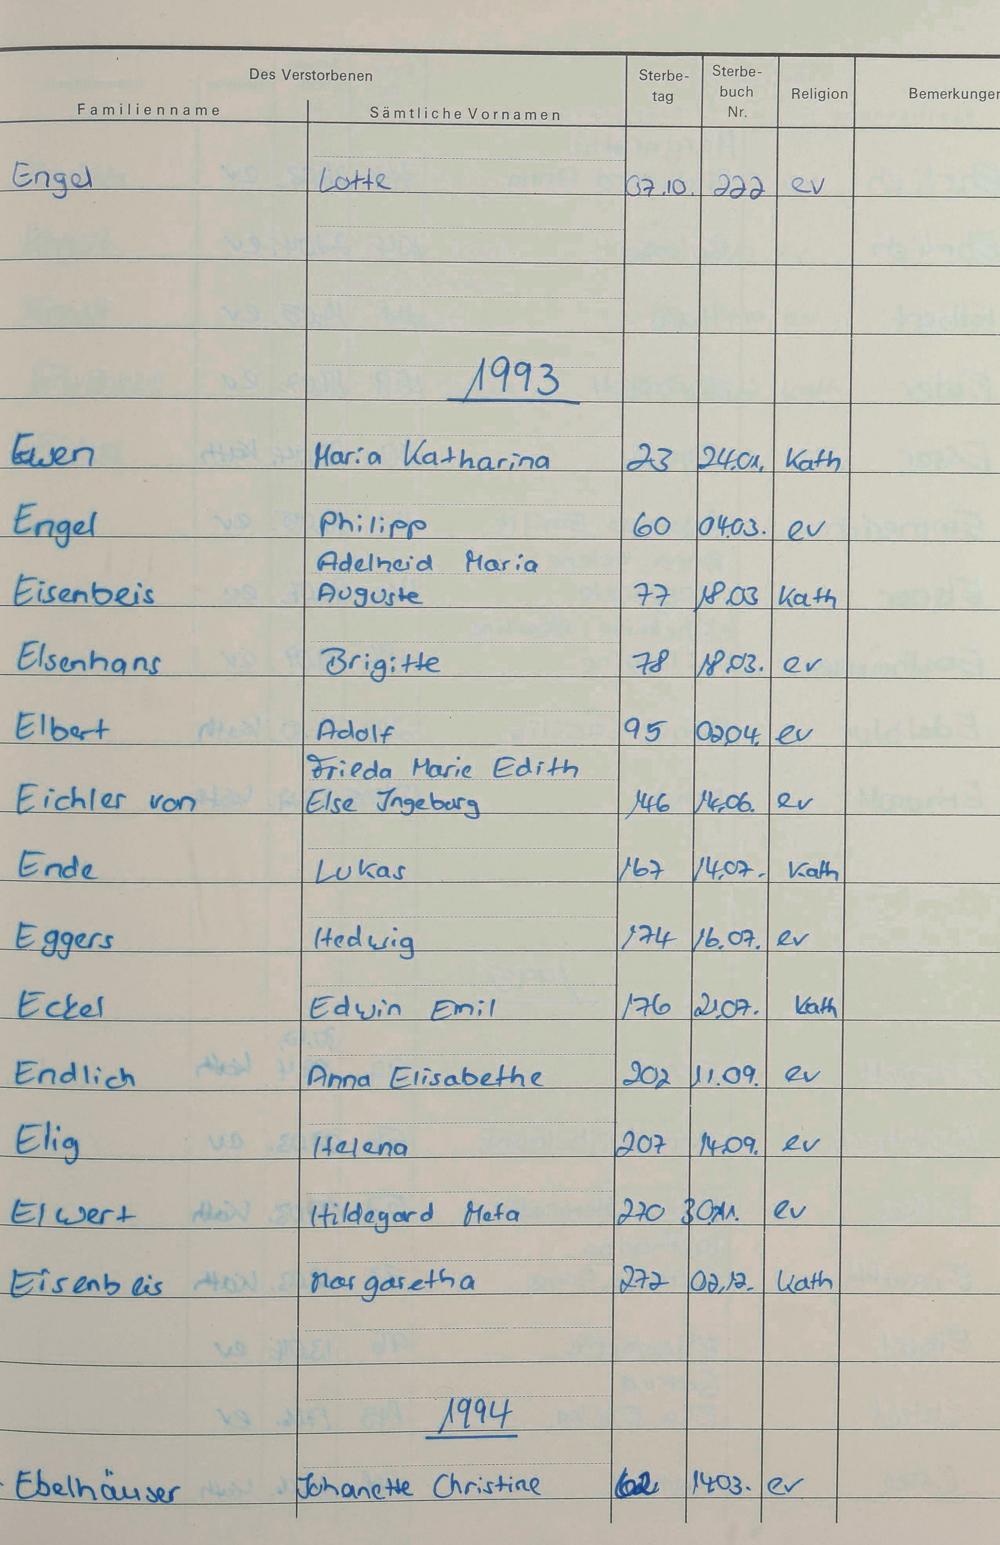 Des Verstorbenen
Familienname Sämtliche Vornamen Sterbe-tag Sterbe-buch Nr. Religion Bemerkungen
Engel Lotte 07.10. 222 ev
1993
Ewen Maria Katharina 23 24.01. Kath
Engel Philipp 60 04.03. ev
Adelheid Maria
Eisenbeis Auguste 77 18.03 Kath
Elsenhans Brigitte 78 18.03. ev
Elbert Adolf 95 02.04. ev
Frieda Marie Edith
Eichler von Else Ingeborg 146 14.06. ev
Ende Lukas 167 14.07. Kath
Eggers Hedwig 174 16.07. ev
Eckel Edwin Emil 176 21.07. Kath
Endlich Anna Elisabethe 202 11.09. ev
Elig Helena 207 14.09. ev
Elwert Hildegard Meta 270 30.11. ev
Eisenbeis Margaretha 272 02.12. Kath
1994
Ebelhäuser Johanette Christine 62 14.03. ev